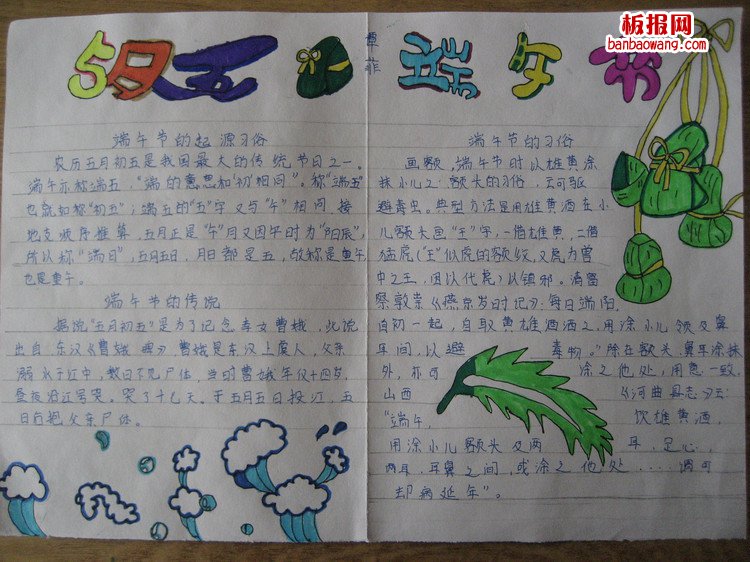 5月五
端午节
覃菲
板报网
banbaowang.com
端午节的起源习俗
农历五月初五是我国最大的传统节日之一。
端午亦称端五，“端的意思和‘初’相同”。称“端五”
也就如称“初五”；端五的“五”字又与“午”相同 按
地支顺序推算，五月正是“午”月又因午时为“阳辰”，
所以称“端日”，五月五日，月日都是五，故称是重午
也是重午。
端午节的传说
据说“五月初五”是为了记念孝女曹娥，此说
出自东汉《曹娥碑》，曹娥是东汉上虞人，父亲
溺水于江中，数日不见尸体，当时曹娥年仅十四岁，
昼夜沿江号哭，哭了十七天。于五月五日投江，五
日后抱父亲尸体。
端午节的习俗
画额，端午节时以雄黄涂
抹小儿之额头的习俗，云可驱
避毒虫。典型方法是用雄黄酒在小
儿额头画“王”字，一借雄黄，二借
猛虎（“王”似虎的额纹，又虎为兽
中之王，因以代虎）以镇邪。清富
察敦崇《燕京岁时记》：每日端阳，
自初一起，自取黄雄酒洒之，用涂小儿领及鼻
耳间，以避 毒物。”除在额头、鼻耳涂抹
外，亦可 涂之他处，用意一致。
山西 《河曲县志》云：
“端午， 饮雄黄酒，
用涂小儿额头及两 耳、足心，
两耳、耳鼻之间，或涂之他处……谓可
却病延年”。